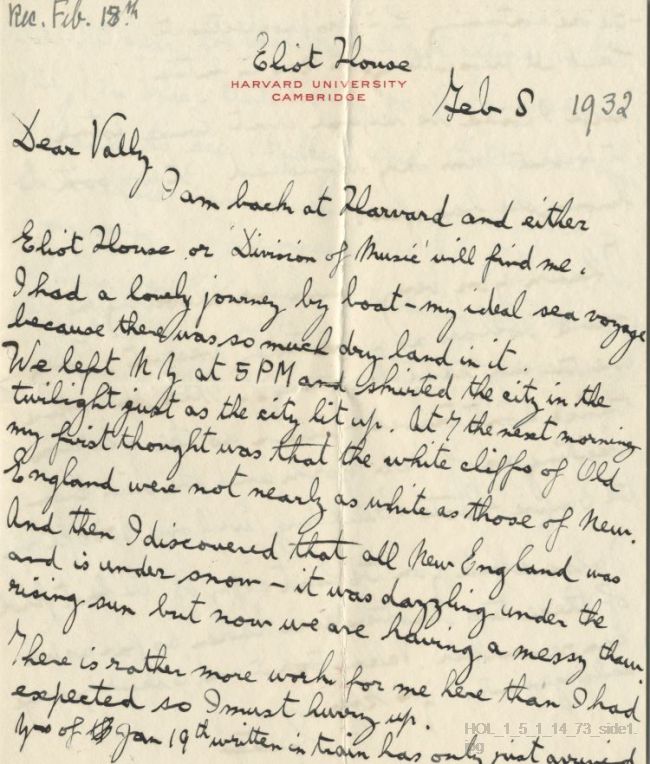 Rec. Feb. 18th
Eliot House
HARVARD UNIVERSITY
CAMBRIDGE
Feb 8 1932
Dear Vally
I am back at Harvard and either
Eliot House or 'Division of Music' will find me.
I had a lovely journey by boat – my ideal sea voyage
because there was so much dry land in it.
We left N Y at 5 PM and skirted the city in the
twilight just as the city lit up. At 7 the next morning
my first thought was that the white cliffs of Old
England were not nearly as white as those of New.
And then I discovered that all New England was
and is under snow – it was dazzling under the
rising sun but now we are having a messy thaw.
There is rather more work for me here than I had
expected so I must hurry up.
Yrs of Jan 19th written in train has only just arrived
HOL_1_5_1_14_73_side1.
jpg